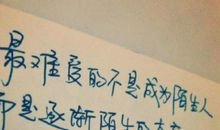 最难爱的不是成为陌生人
而是逐渐陌生的